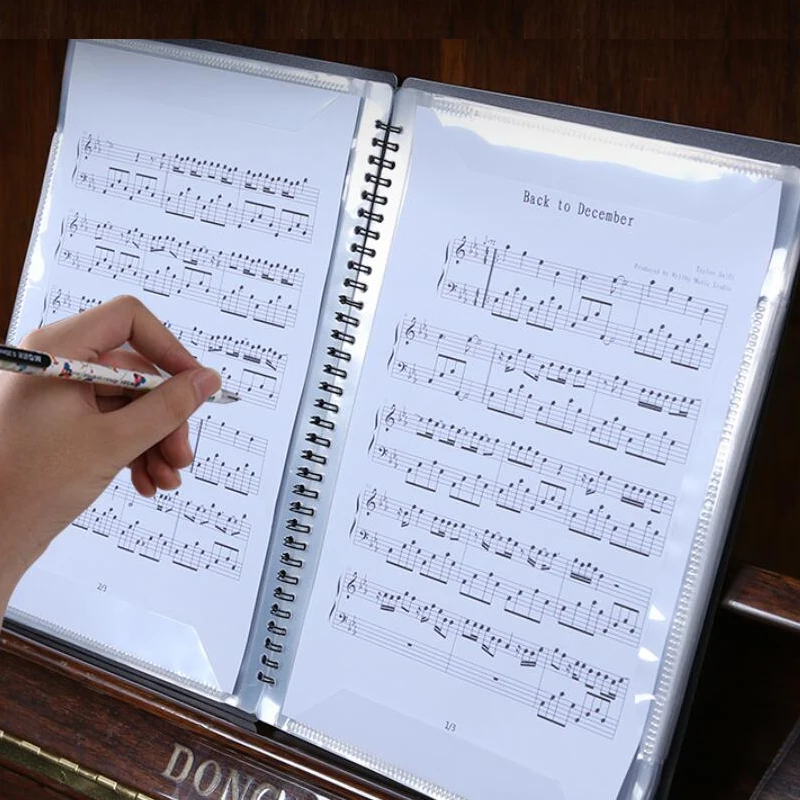 2/3
Back to December
Taylor Swift
Produced by Music Studio
1/3
DONG